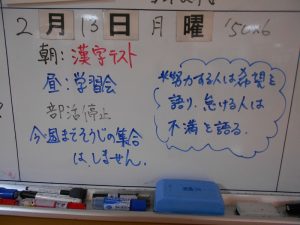 2月13日月曜
朝：漢字テスト
昼：学習会
部活停止
今週までそうじの集合
はしません。
努力する人は希望を
語り、怠ける人は
不満を語る。